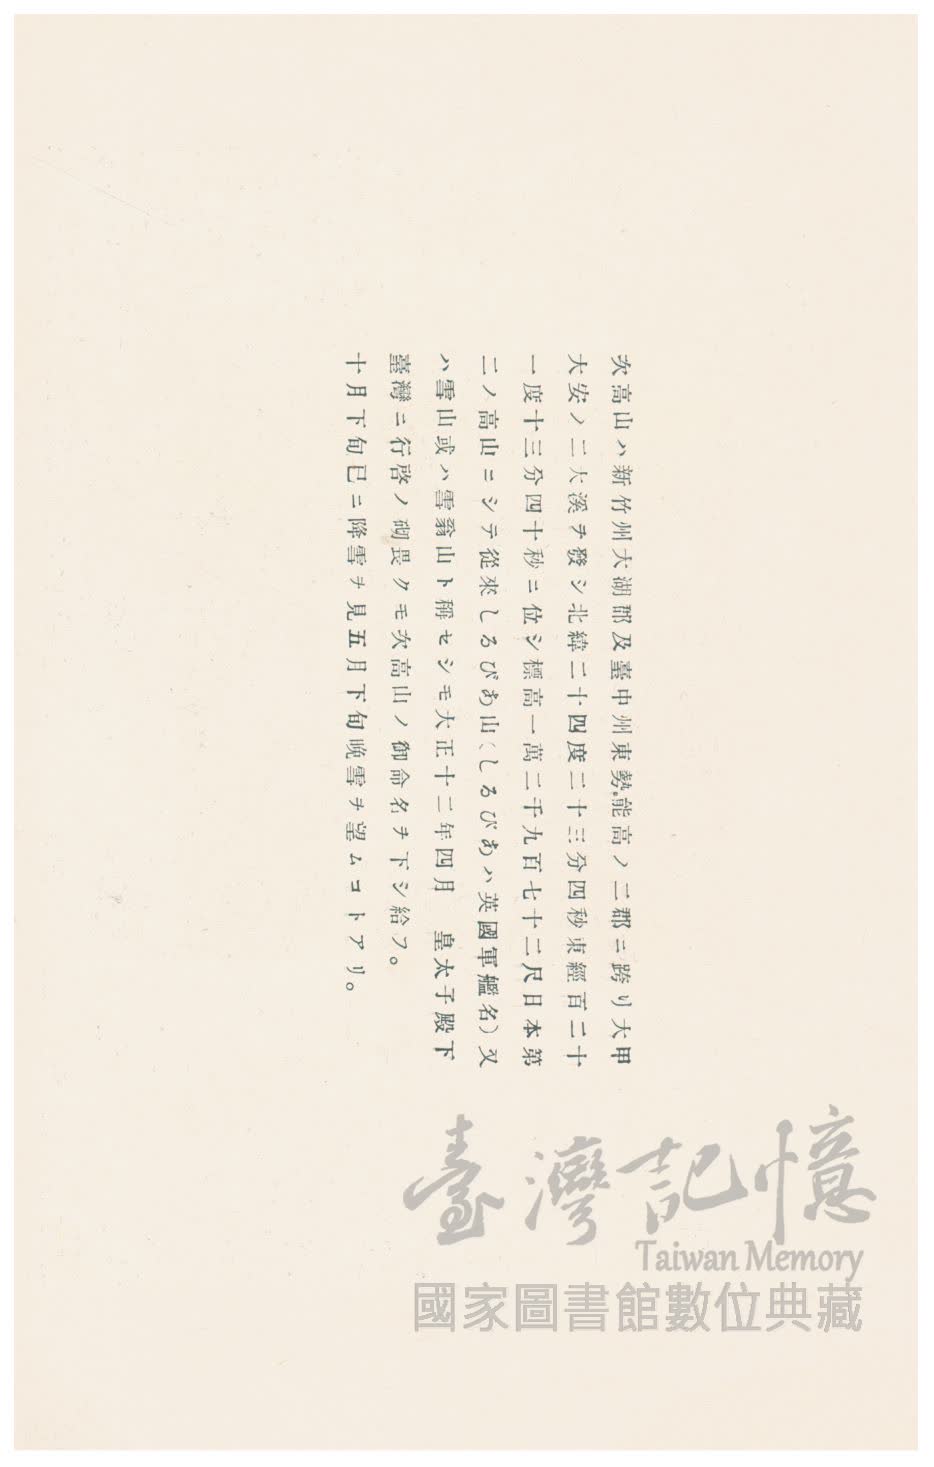 次高山ハ新竹州大湖郡及臺中州東勢。能高ノ二郡ニ跨リ大甲
大安ノ二大溪ヲ發シ北緯二十四度二十三分四秒東經百二十
一度十三分四十秒ニ位シ標高一萬二千九百七十二尺日本第
二ノ高山ニシテ從來しるびあ山(しるびあハ英國軍艦名)又
ハ雪山或ハ雪翁山ト稱セシモ大正十二年四月　皇太子殿下
臺灣ニ行啓ノ砌畏クモ次高山ノ御命名ヲ下シ給フ。
十月下旬已ニ降雪ヲ見五月下旬晩雪ヲ望ムコトアリ。
臺灣記憶
Taiwan Memory
國家圖書館數位典藏